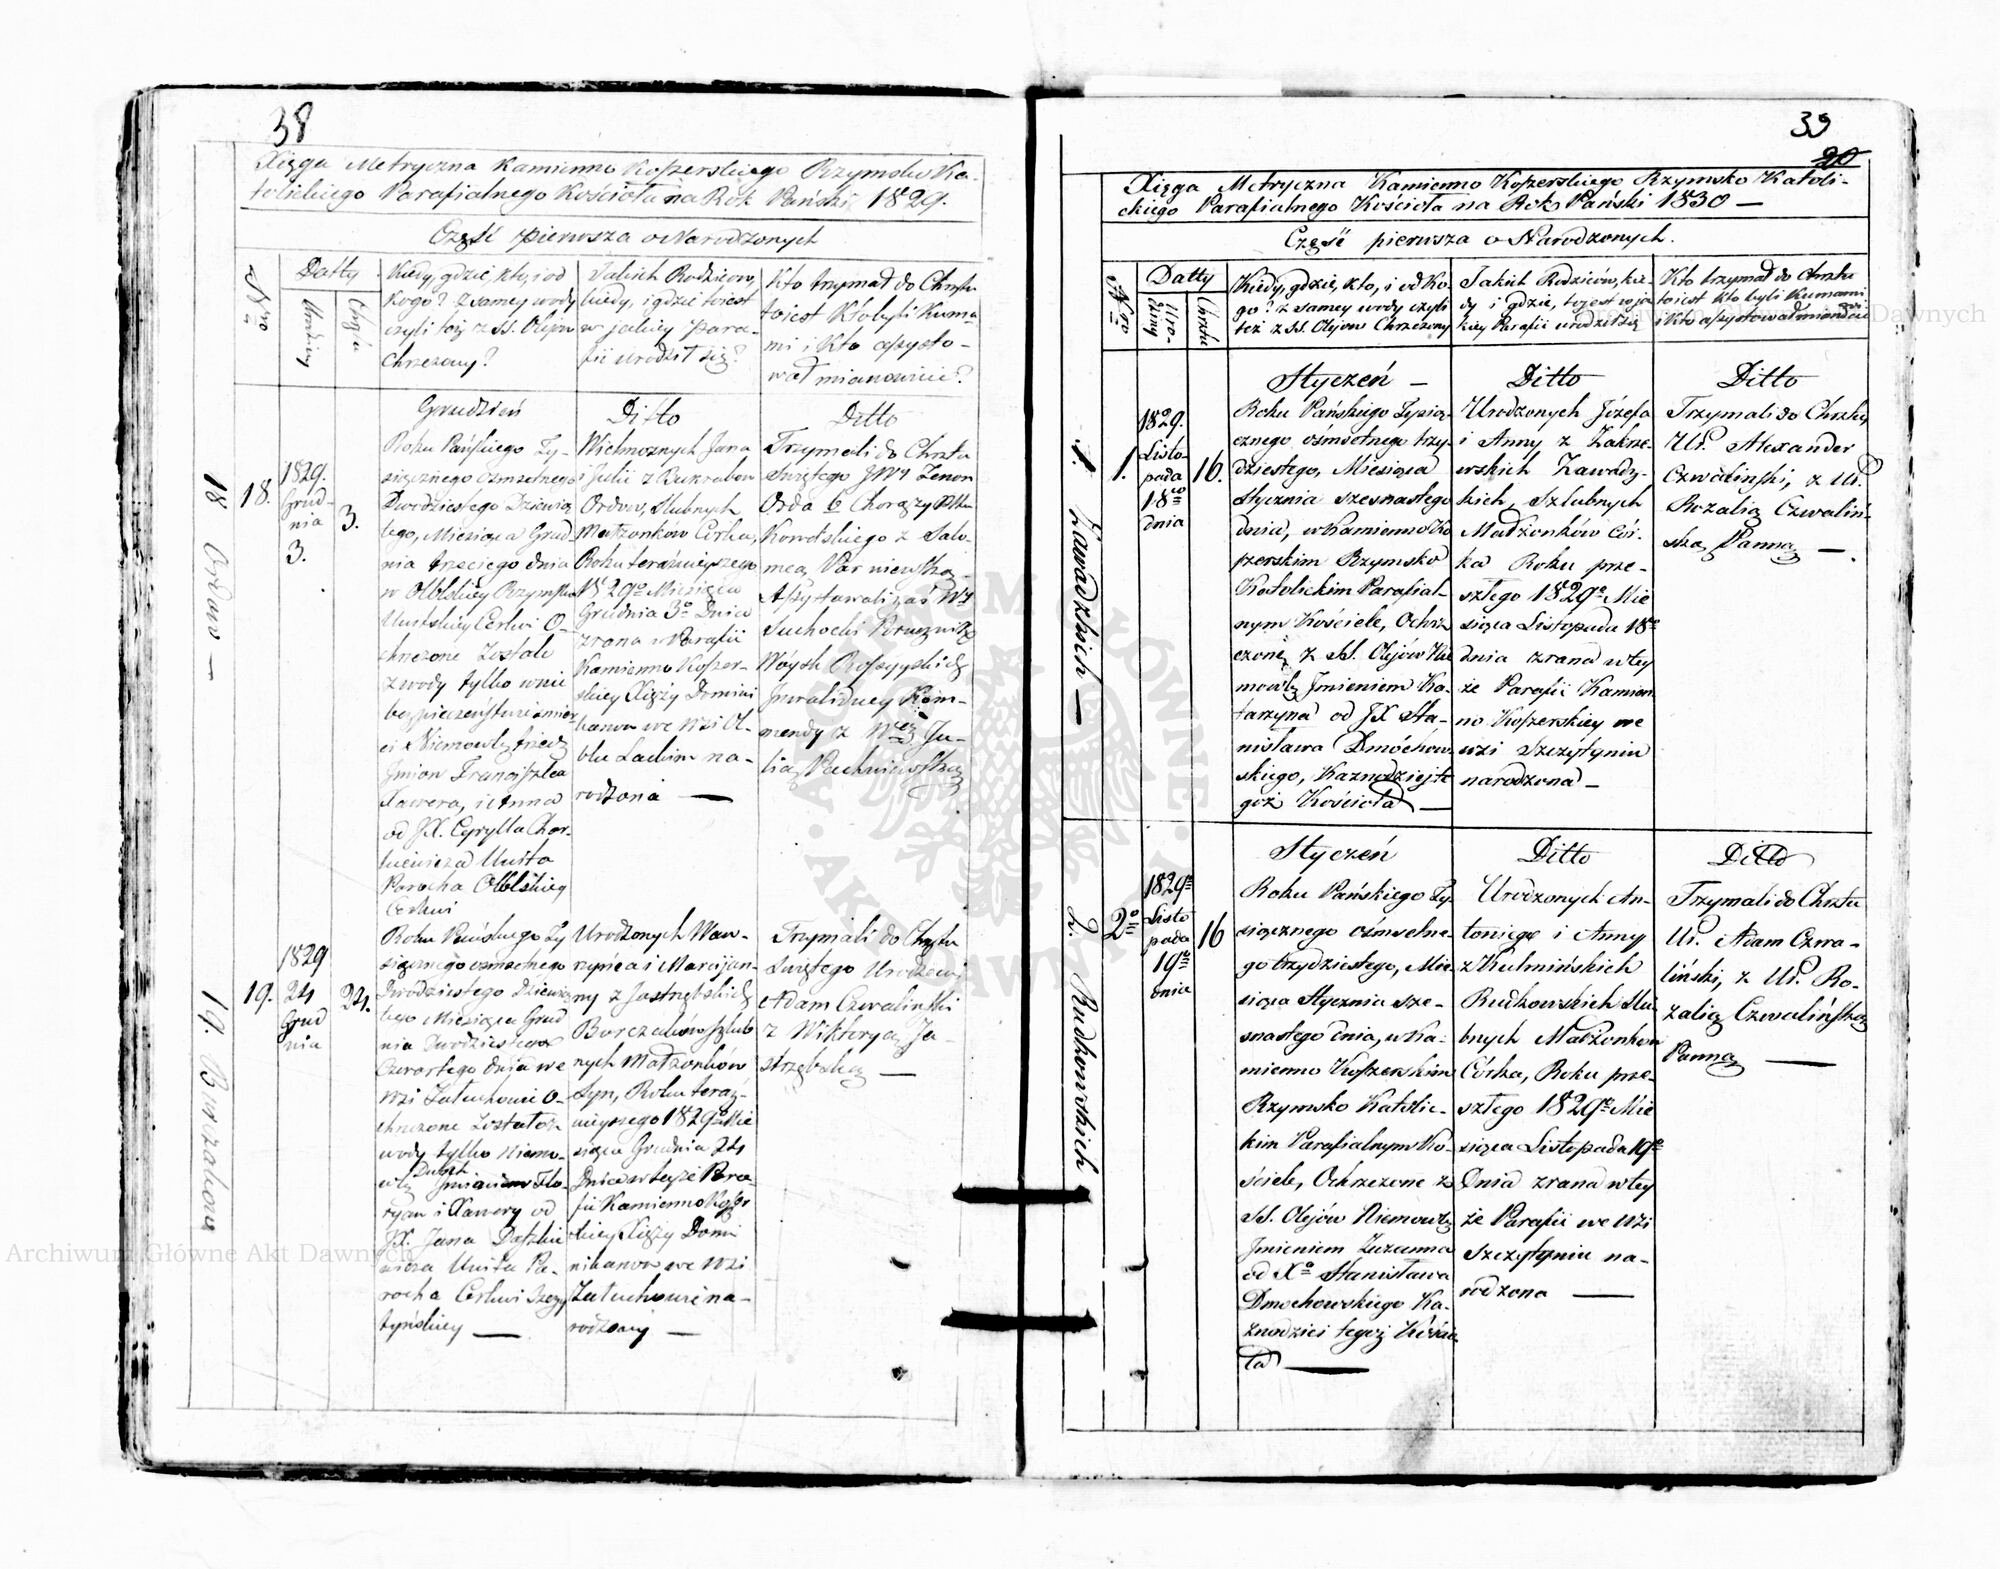 38
Xięga Metryczna Kamienno Koszerskiego Rzymsko Ka-
tolickiego Parafialnego Kościoła na Rok Pański 1829.
Część pierwsza o Narodzonych
Nro
Datty
Urodziny
Chrztu
Kiedy, gdzie, kto, i od
Kogo? z samey wody
czyli też z SS. Olejów
Chrzczony?
Jakich Rodziców,
kiedy, i gdzie to iest
w jakiey para-
fii urodził się?
Kto trzymał do Chrztu
to iest Kto byli Kuma-
mi i Kto assysto-
wał mianowicie?
18 Ordow —
18.
1829.
Grud-
nia
3.
3.
Grudzień
Roku Pańskiego Ty-
siącznego Ozmsetnego
Dwodziestego Dziewią
tego, Miesiąca Grud-
nia trzeciego dnia
w Olblskiey Rzymsko
Unitskiey Cerkwi O-
chrzczone Zostało
z wody tylko w nie
bezpieczeństwie śmier
ci Niemowle trzech
Jmion Franciszka
Xawera, i Anna
od JX. Cyrylla Chor-
Unita
Parocha Olblskiey
Cerkwi
Ditto
Wielmoznych Jana
i Julii z Bukrabow
Ordow, Slubnych
Małzonków Córka,
Roku teraznieyszego
1829o Miesiąca
Grudnia 3o Dnia
z rana w Parafii
Kamienno Koszer-
skiey Xięży Domini
kanow we Wsi Ol-
ble Lackim na-
rodzona —
Ditto
Trzymali do Chrztu
Swiętego JWy Zenon
Orda b Chorąży Pttu
Kowelskiego z Salo-
meą
Assystowali zaś Wy
Suchocki Porucznik
Woysk Rossyyskich
Jnwalidney Kom-
mendy z Wną Ju-
lią
19. Burzakow
19.
1829
24
Grud
nia
24.
Roku Pańskiego Ty
siącznego ozmsetnego
Dwodziestego Dziewią
tego Miesiąca Grud
nia Dwodziestego
Czwartego dnia we
Wsi Zatuchowie O-
chrzczone Zostało z
wody tylko Niemo-
wle Dwoch Jmieniem Flo-
ryan i Xawery od
JX. Jana Daszkie
wicza Unita Pa-
rocha Cerkwi Szczy
tyńskiey —
Urodzonych Waw-
rzyńca i Marcijan-
ny z Jastrzębskich
Burzakow szlub
nych Małzonków
Syn, Roku teraz-
nieyszego 1829o Mie
siąca Grudnia 24
Dnia w teyże Para
fii Kamienno Koszer
skiey Xięży Domi
nikanow we Wsi
Zatuchowie na-
rodzony —
Trzymali do Chrztu
Swiętego Urodzeni
Adam Czwalinski
z Wiktoryą Ja-
strzębską —
39
20
Xięga Metryczna Kamienno Koszerskiego Rzymsko Katoli-
ckiego Parafialnego Kościoła na Rok Pański 1830 —
Część pierwsza o Narodzonych.
Nro
Datty
Uro-
dziny
Chrztu
Kiedy, gdzie, kto, i od Ko-
go? z samey wody czyli
też z SS. Olejów Chrzczony
Jakich Rodziców, kie-
dy i gdzie, to jest w ja
kiey Parafii urodził się
Kto trzymał do Chrztu
to iest kto byli Kumami
i Kto assystował mianowi
cie
1. Zawadzkich —
1.
1829.
Listo-
pada
18go
dnia
16.
Styczeń —
Roku Pańskiego Tysią-
cznego ośmsetnego trzy-
dziestego, Miesiąca
Stycznia szesnastego
dnia, w Kamienno Ko
szerskim Rzymsko
Katolickim Parafial-
nym Kościele, Ochrz
czone z SS. Olejów Nie
mowle Jmieniem Ka-
tarzyna od JX Sta-
nisława Dmóchow-
skiego, Kaznodziej te
goż Kościoła —
Ditto
Urodzonych Józefa
i Anny z Zakrze-
wskich Zawadz-
kich, Szlubnych
Małżonków Cór-
ka Roku prze-
szłego 1829o Mie
siąca Listopada 18o
dnia z rana w tey
że Parafii Kamien
no Koszerskiey we
wsi Szczytyniu
narodzona —
Ditto
Trzymali do Chrztu,
Ur. Alexander
Czwaliński, z Ur.
Rozalią Czwaliń-
ską Panną —.
2. Rudkowskich
2o
1829o
Listo
pada
19o
dnia
16
Styczeń
Roku Pańskiego Ty-
siącznego ośmsetne-
go trzydziestego, Mie-
siąca Stycznia sze-
snastego dnia, w Ka-
mienno Koszerskim
Rzymsko Katolic-
kim Parafialnym Ko-
ściele, Ochrzczone z
SS. Olejów Niemowle
Jmieniem Zuzanna
od Xa Stanisława
Dmochowskiego Ka-
znodziei tegoż Kościo
ła —
Ditto
Urodzonych An-
toniego i Anny
z Kulmińskich
Rudkowskich Slu-
bnych Małżonków
Córka, Roku prze-
szłego 1829o Mie
siąca Listopada 19o
Dnia z rana w tey
że Parafii we wsi
Szczytyniu na-
rodzona —
Ditto
Trzymali do Chrztu
Ur. Adam Czwa-
liński, z Ur. Ro-
zalią Czwalińską
Panną —
Archiwum Główne Akt Dawnych
Archiwum Główne Akt Dawnych